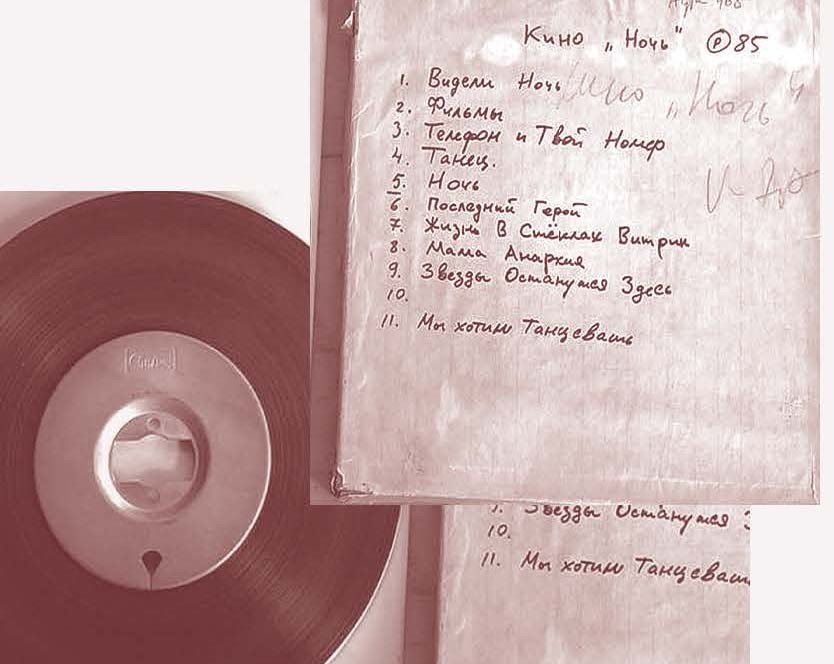 Кино „Ночь" Ⓟ85
1. Видели Ночь
2. Фильмы
3. Телефон и Твой Номер
4. Танец.
5. Ночь
6. Последний Герой
7. Жизнь В Стёклах Витрин
8. Мама Анархия
9. Звезды Останутся Здесь
10.
11. Мы хотим Танцевать
Кино „Ночь"
9. Звезды Останутся З
10.
11. Мы хотим Танцевать